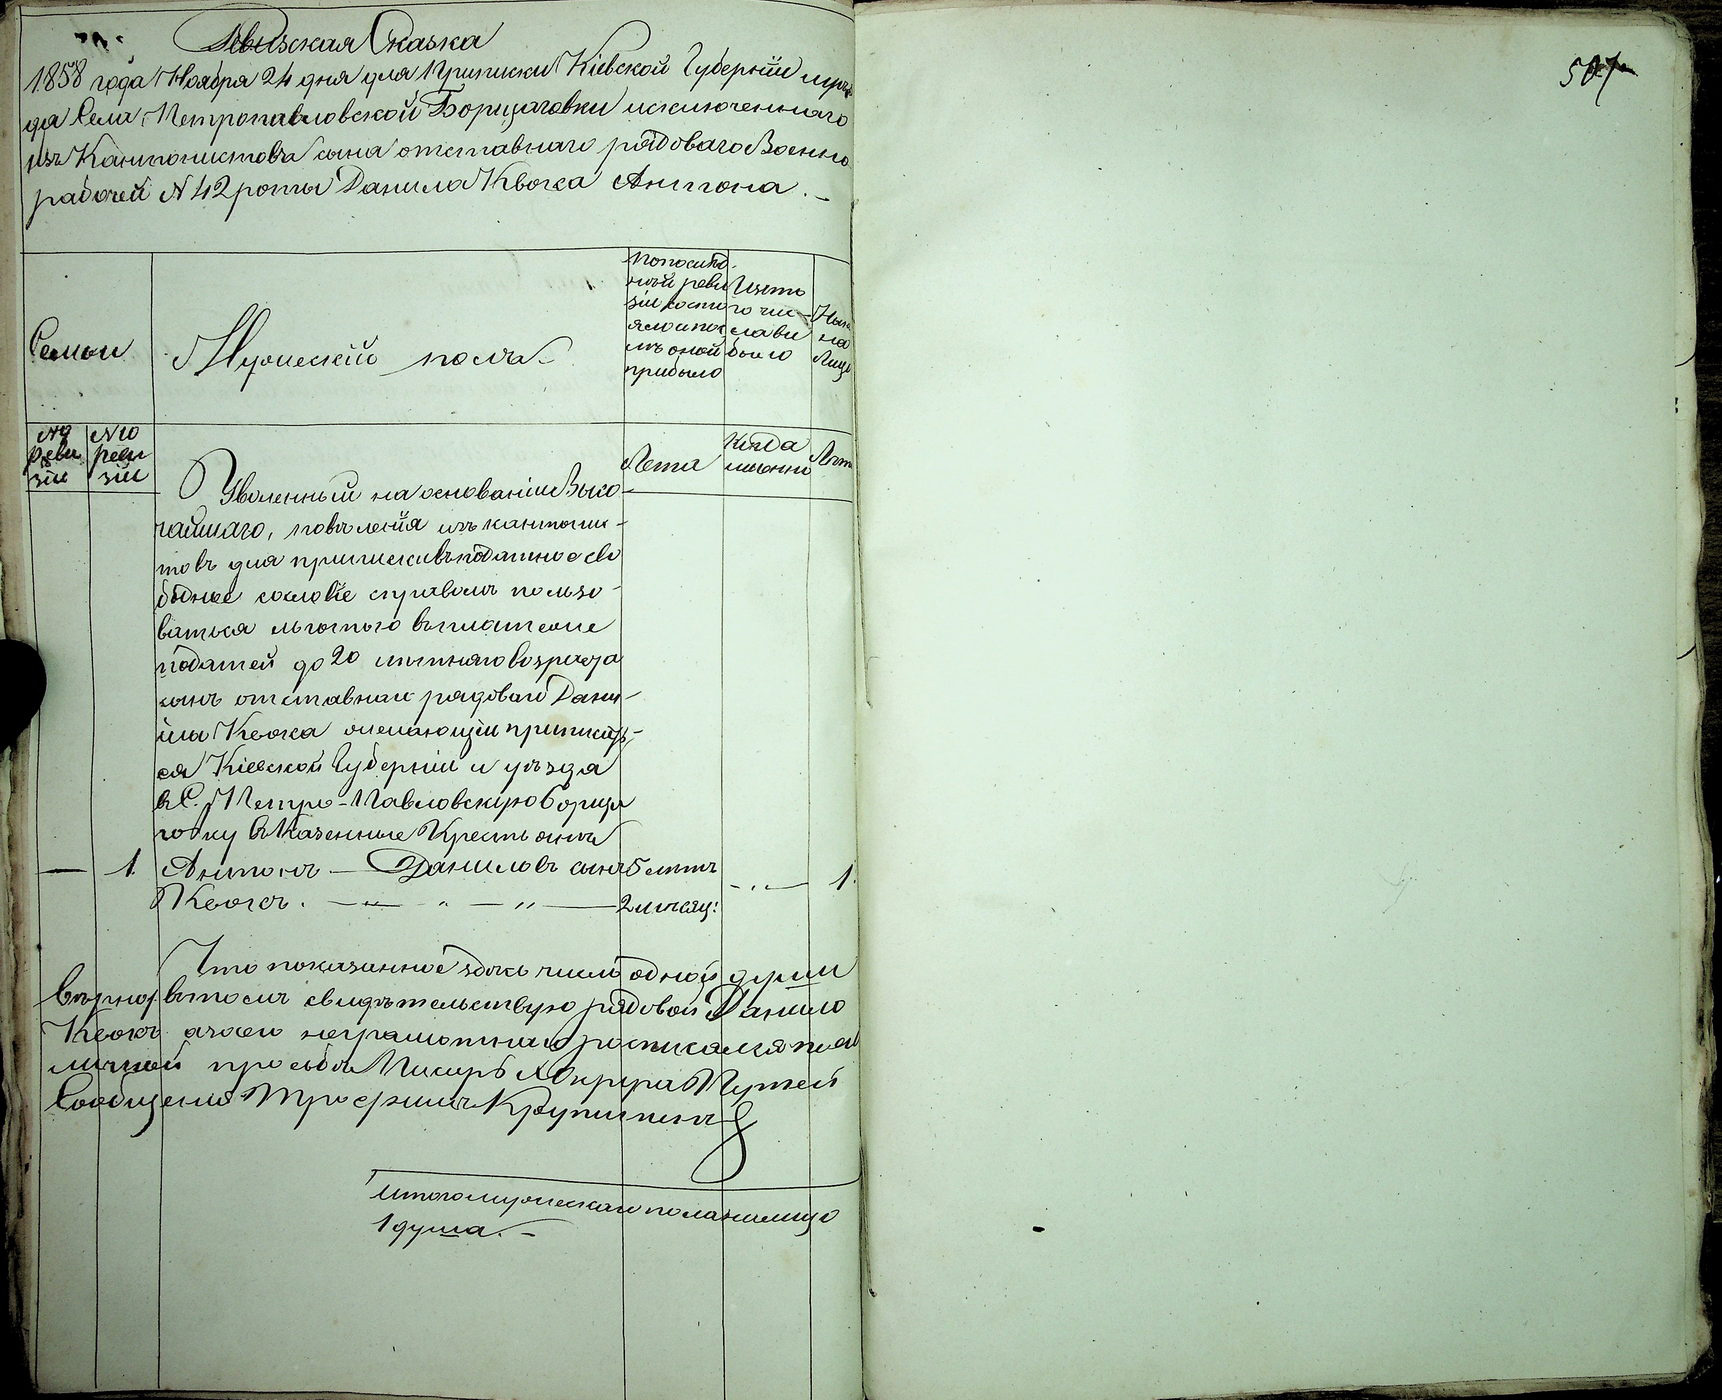 Ревизская Сказка
1858 года Ноября 24 дня для Приписки Кіевской Губерніи и уѣз
да Села Петропавловской Борщаговки исключеннаго
изъ Кантонистовъ сына отставнаго рядоваго Военно
рабочей № 42 роты Данила Квока Антона. –
507
Семьи
Мужескій полъ.
По послѣд-
ней реви
зіи состо
яло и пос
лѣ оной
прибыло
Изъ то
го чис-
ла вы
было
Нын
на
Лицо
№ 9
реви
зіи
№ 10
реви
зіи
Лета
Когда
именно
Лѣт
Уволенный на основаніи Высо-
чайшаго, повѣленія изъ кантонис-
товъ для приписки въ податное сво
бодное сословіе съ правомъ пользо-
ваться льготою въ платеже
податей до 20 лѣтняго возраста
сынъ отставнаго рядоваго Дани-
ила Квока желающій приписать-
ся Кіевской Губерніи и уѣзда
в С. Петро-Павловскую Борща
говку въ Казенные Крестьяне
— 1. Антонъ — Даниловъ сынъ 5 лѣтъ — 1.
Квокъ. — „ — „ — „ — 2 мѣсяц:
Что показанное здѣсь число одной души
вѣрно, въ томъ свидѣтельствую рядовой Данило
Квокъ а за его неграмотнаго росписался по его
личной просьбѣ Писарь X Округа Путей
Сообщенія Трофимъ
Итого мужескаго пола на лицо
1 душа. –